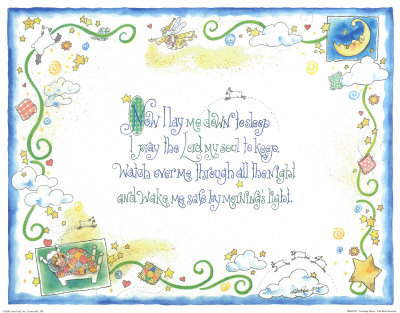 Now I lay me down to sleep
I pray the Lord my soul to keep.
Watch over me through all the night
and wake me safe by morning's light.